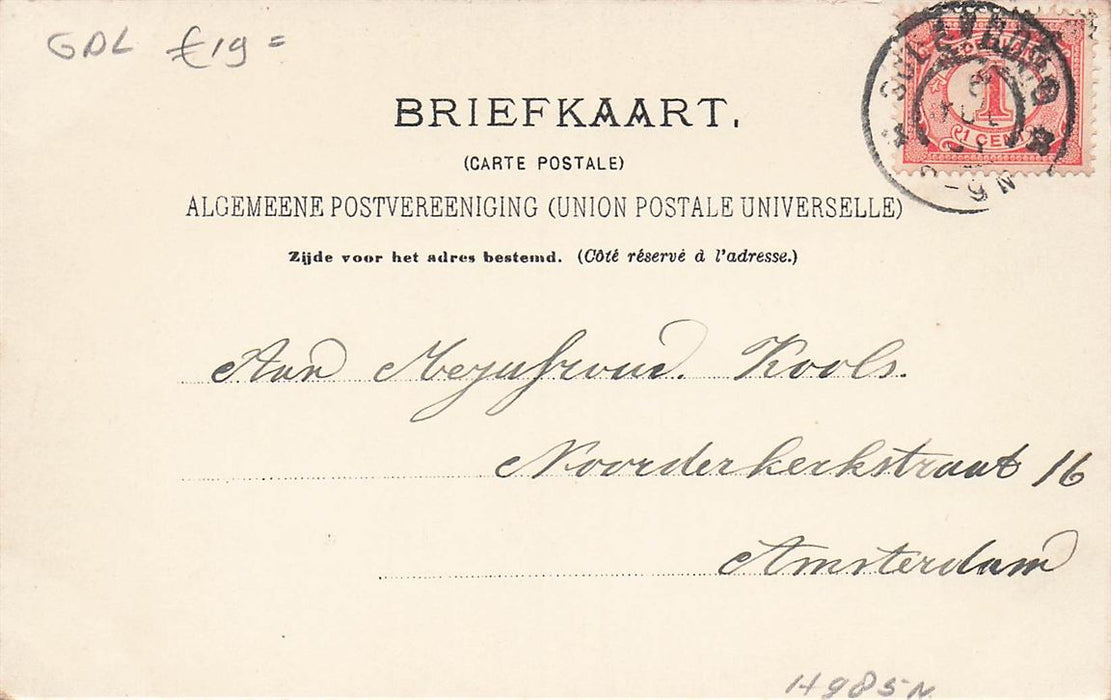 GDL £19=
BRIEFKAART.
(CARTE POSTALE)
ALGEMEENE POSTVEREENIGING (UNION POSTALE UNIVERSELLE)
Zijde voor het adres bestemd. (Côté réservé à l'adresse.)
NEDERLAND
1
1 CENT
JUL
Aan Mejufvrouw. Kools.
Noorderkerkstraat 16
Amsterdam
H985N